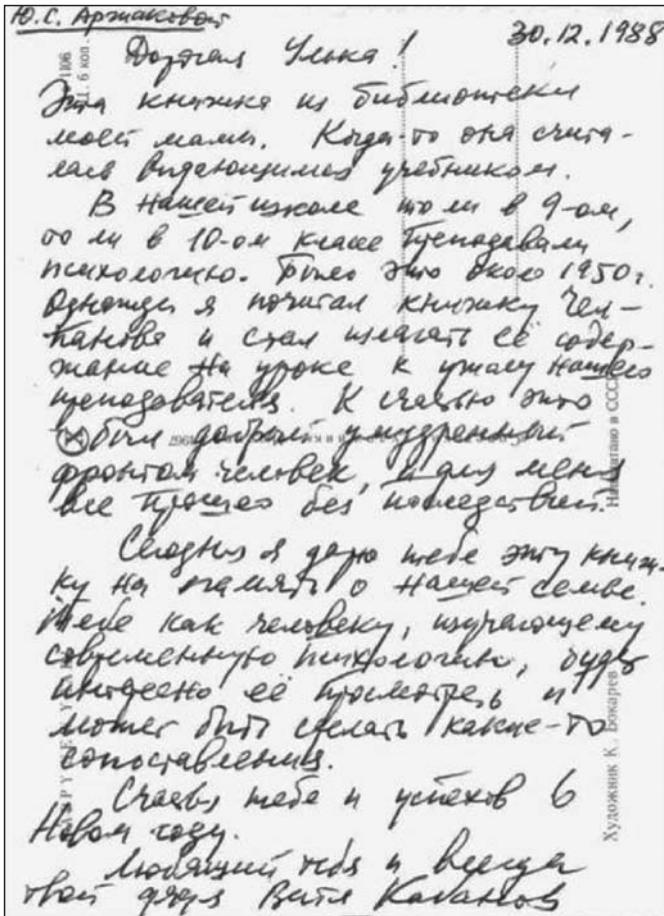 Ю.С. Аржаковой
30.12.1988
Дорогая Улька!
Эта книжка из библиотеки
моей мамы. Когда-то она счита-
лась выдающимся учебником.
В нашей школе то ли в 9-ом,
то ли в 10-ом классе преподавали
психологию. Было это около 1950 г.
Однажды я почитал книжку Чел-
панова и стал излагать её содер-
жание на уроке к ужасу нашего
преподавателя. К счастью это
был добрый умудренный
фронтом человек, и для меня
все прошло без последствий.
Сегодня я дарю тебе эту книж-
ку на память о нашей семье.
Тебе как человеку, изучающему
современную психологию, будет
интересно её просмотреть и
может быть сделать какие-то
сопоставления.
Счастья тебе и успехов в
Новом году.
Любящий тебя и всегда
твой дядя Витя Кабанов
1106
Ц. 6 коп.
Напечатано в СССР
Художник К. Бокарев